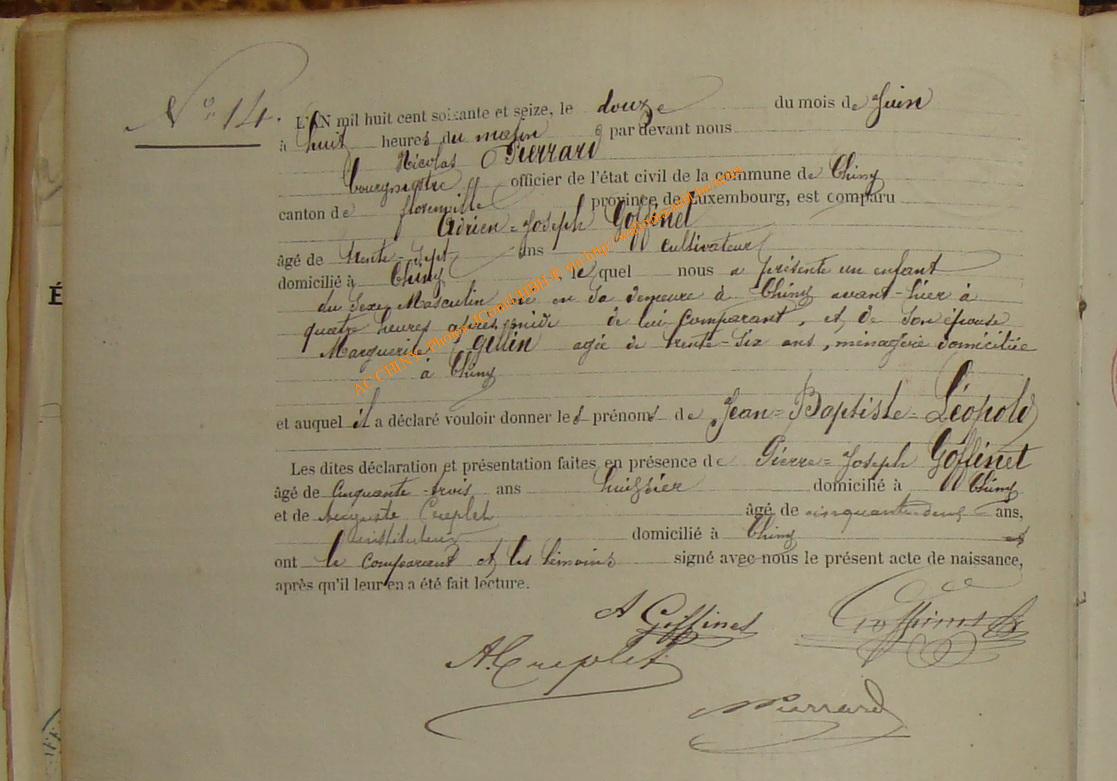 N° 14.
L'AN mil huit cent soixante et seize, le douze du mois de Juin
à huit heures du matin par devant nous
Nicolas Pierrard
bourgmestre officier de l'état civil de la commune de Chiny
canton de florenville province de Luxembourg, est comparu
Adrien=Joseph Goffinet
âgé de trente-sept ans cultivateur
domicilié à Chiny, lequel nous a présenté un enfant
du sexe Masculin né en sa demeure à Chiny avant-hier à
quatre heures après midi de lui comparant, et de son épouse
Marguerite Gillin agée de trente-six ans, ménagère domiciliée
à Chiny
et auquel il a déclaré vouloir donner les prénoms de Jean=Baptiste=Léopold
Les dites déclaration et présentation faites en présence de Pierre=Joseph Goffinet
âgé de cinquante-trois ans huissier domicilié à Chiny
et de Auguste Creplet âgé de cinquante-deux ans,
instituteur domicilié à Chiny
ont le comparant et les témoins signé avec nous le présent acte de naissance,
après qu'il leur en a été fait lecture.
A Goffinet Goffinet
A. Creplet
N Pierrard
É